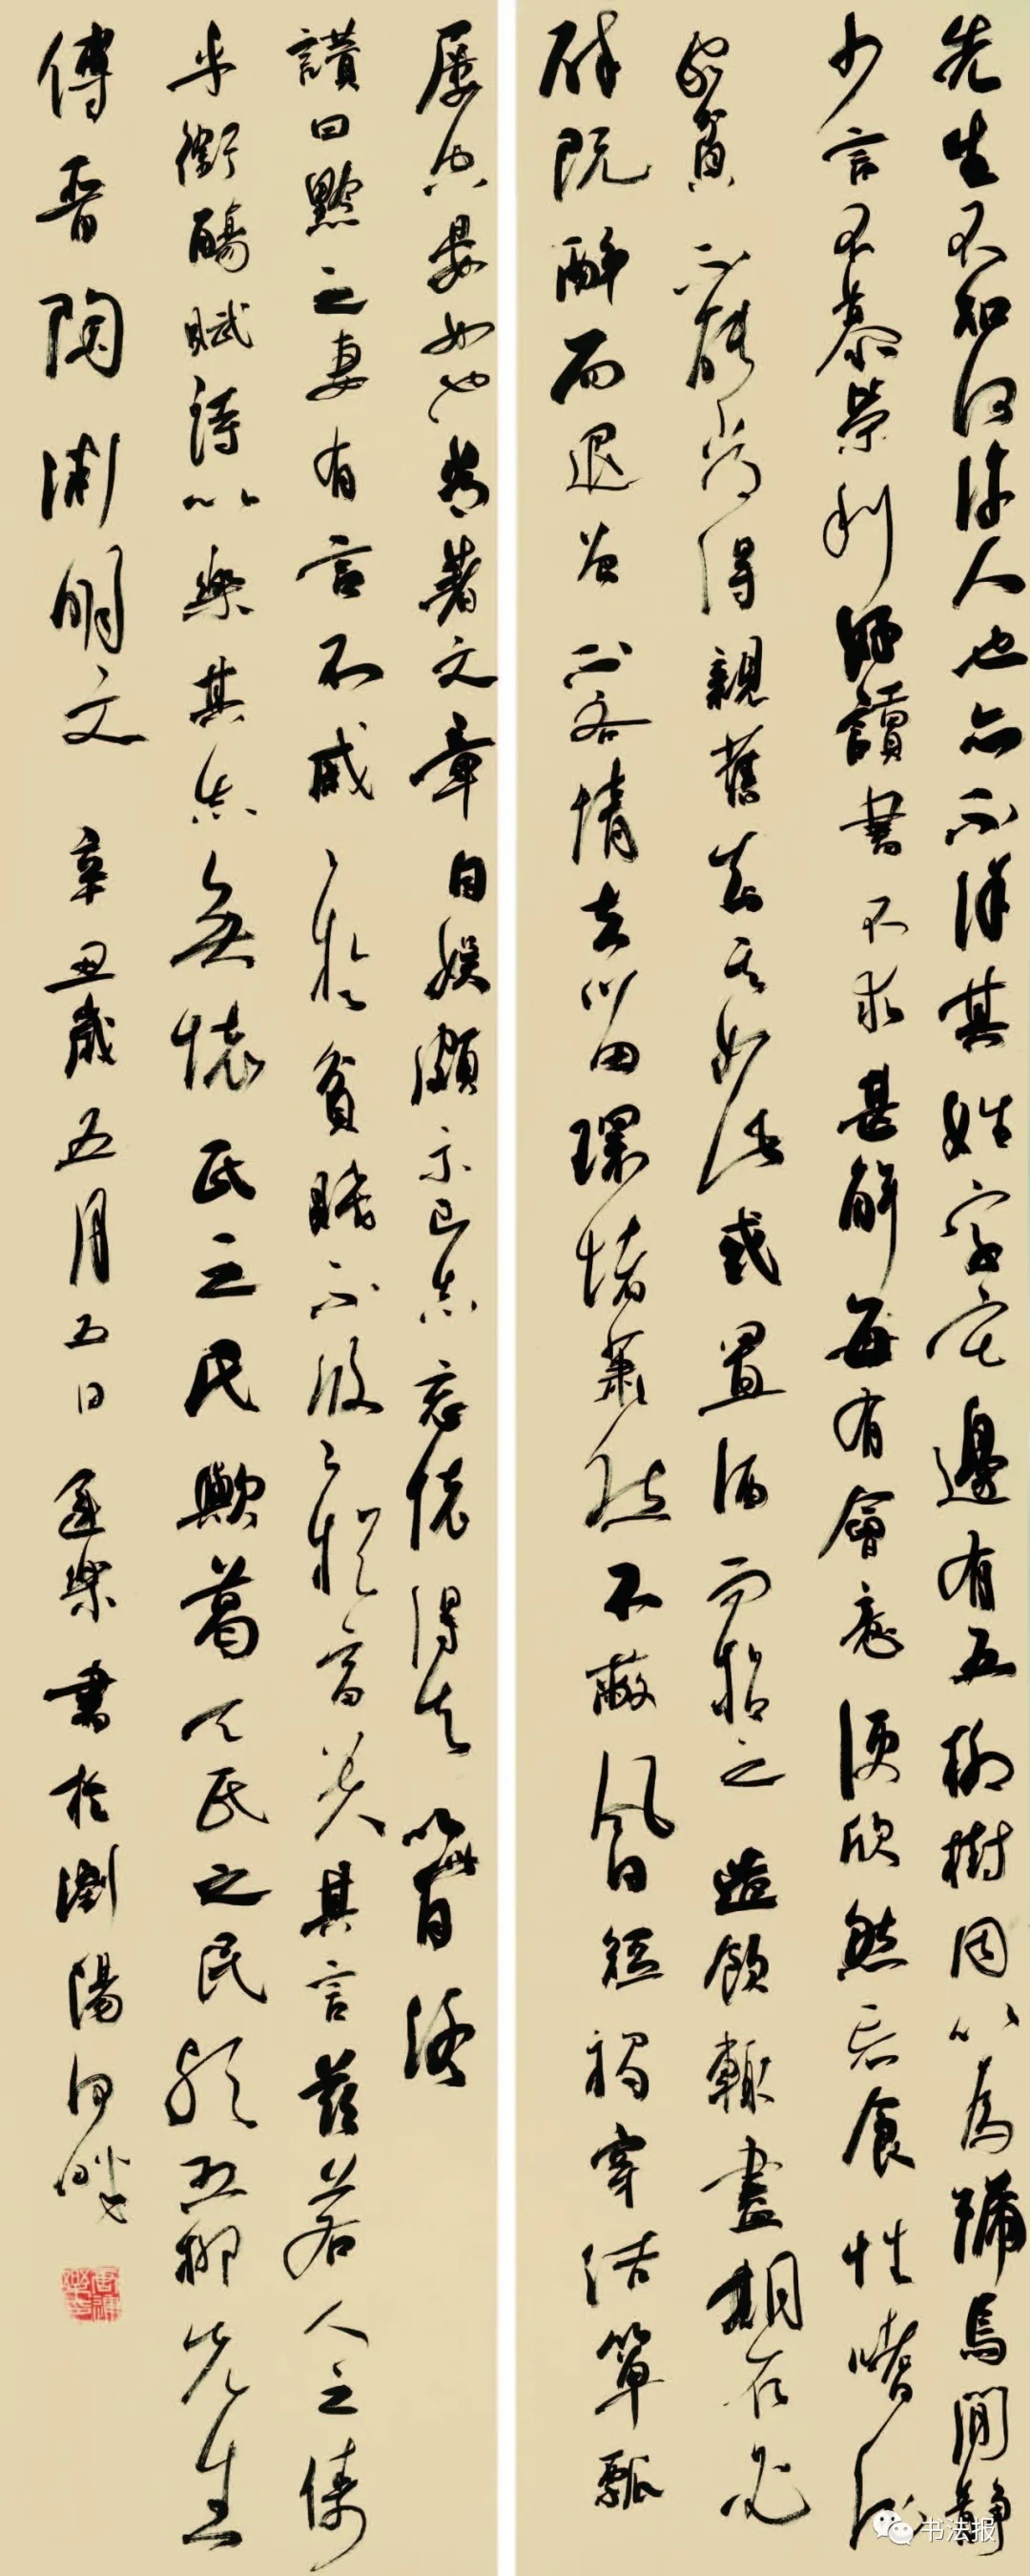 先生不知何許人也亦不詳其姓字宅邊有五柳樹因以為號焉閒靜
少言不慕榮利好讀書不求甚解每有會意便欣然忘食性嗜酒
家貧不能常得親舊知其如此或置酒而招之造飲輒盡期在必
醉既醉而退曾不吝情去留環堵蕭然不蔽風日短褐穿結簞瓢
屢空晏如也常著文章自娛頗示己志忘懷得失以此自終
讚曰黔之妻有言不戚戚於貧賤不汲汲於富貴其言茲若人之儔
乎銜觴賦詩以樂其志無懷氏之民歟葛天氏之民歟五柳先生
傳晉陶淵明文 辛丑歲五月五日樂書於瀏陽河畔
书法报